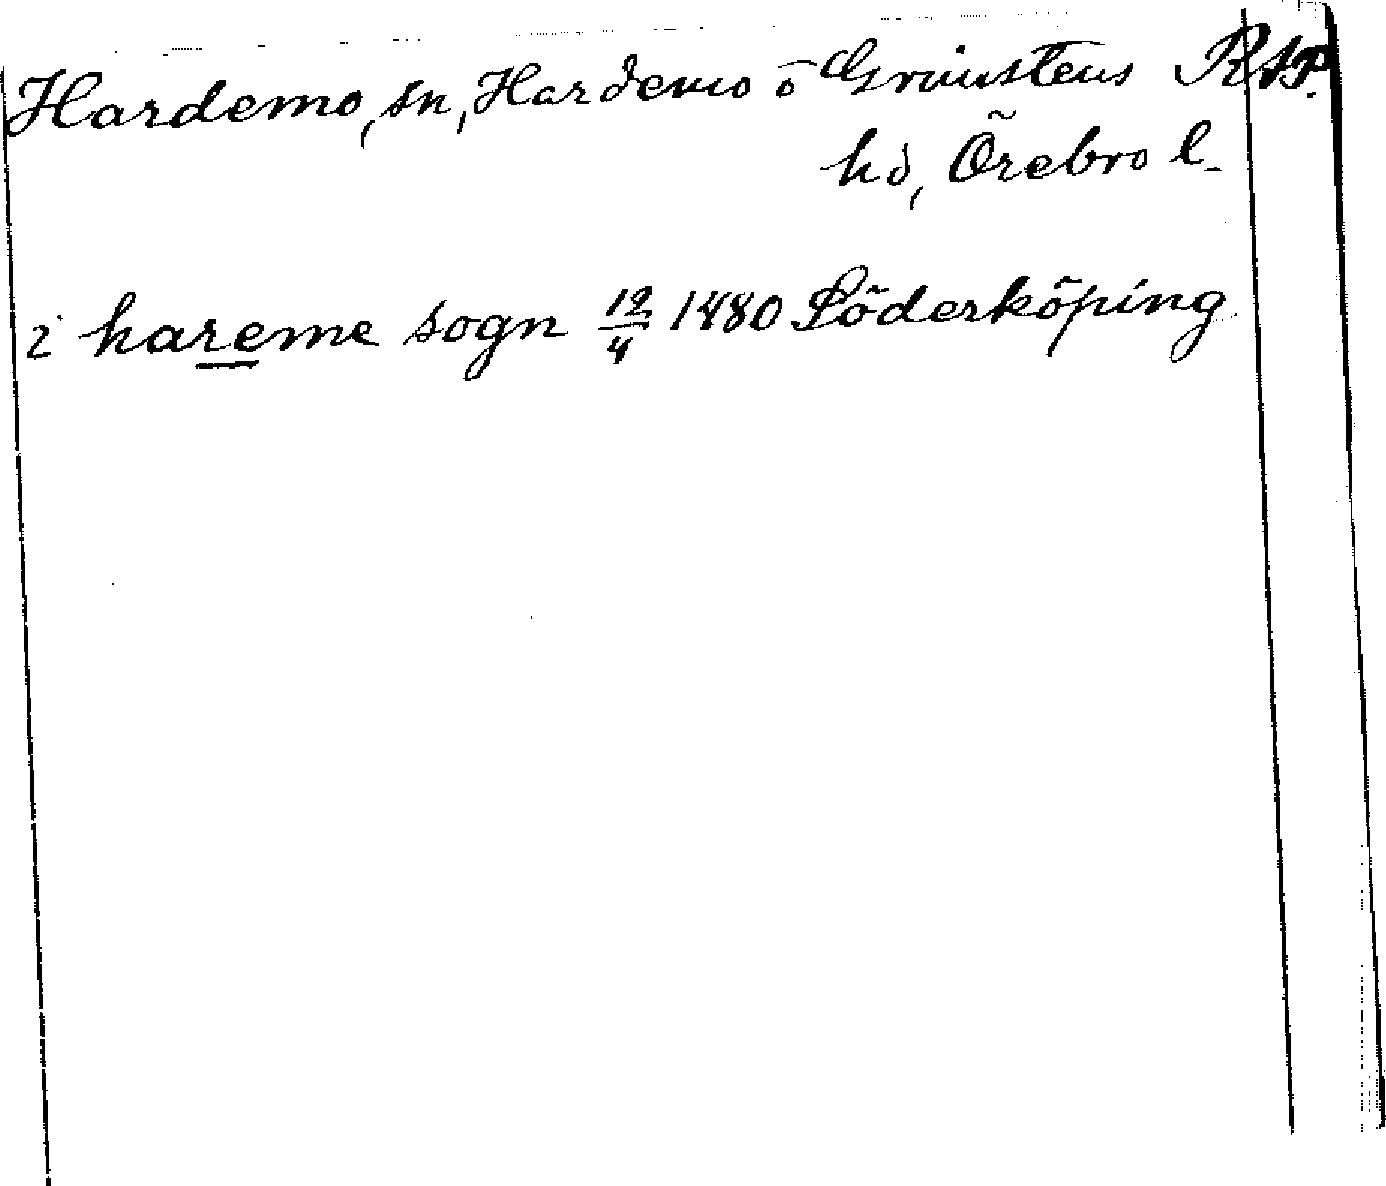 Hardemo, sn, Hardemo o Grimstens RAP.
hd, Örebro l.
i hareme sogn 12/4 1480 Söderköping